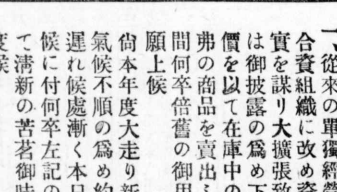 一、從來の單獨經營
合資組織に改め資
實を謀リ大擴張致
は御披露の為め下
價を以て在庫中の
弗の商品を賣出ふ
間何卒倍舊の御用
願上候
尙本年度大走り新
氣候不順の爲め約
遲れ候處漸く本日
候に付何卒左記の
て淸新の苦茗御味